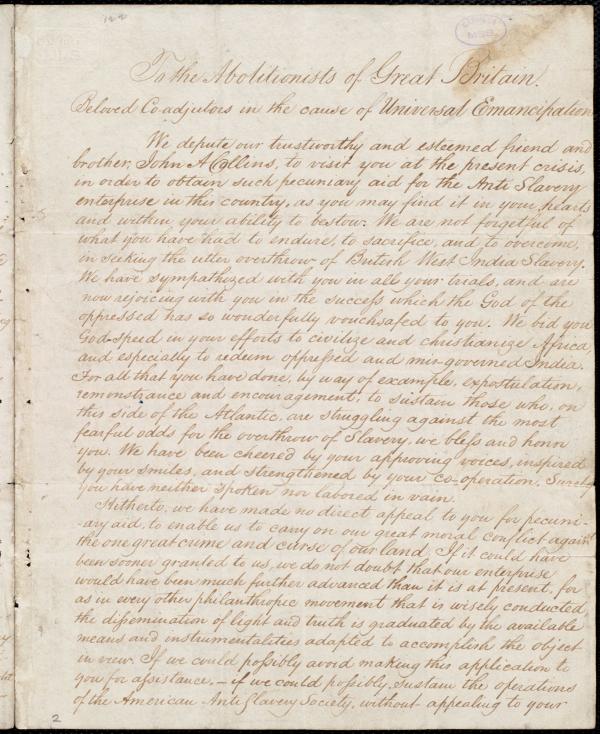 To the Abolitionists of Great Britain.
Beloved Coadjutors in the cause of Universal Emancipation
We depute our trustworthy and esteemed friend and
brother, John A Collins, to visit you at the present crisis,
in order to obtain such pecuniary aid for the Anti Slavery
enterprise in this country, as you may find it in your hearts
and within your ability to bestow. We are not forgetful of
what you have had to endure, to sacrifice, and to overcome,
in seeking the utter overthrow of British West India Slavery.
We have sympathized with you in all your trials, and are
now rejoicing with you in the success which the God of the
oppressed has so wonderfully vouchsafed to you. We bid you
God-speed in your efforts to civilize and christianize Africa,
and especially to redeem oppressed and mis-governed India.
For all that you have done, by way of example, expostulation,
remonstrance and encouragement, to sustain those who, on
this side of the Atlantic, are struggling against the most
fearful odds for the overthrow of Slavery, we bless and honor
you. We have been cheered by your approving voices, inspired
by your smiles, and strengthened by your co-operation. Surely
you have neither spoken nor labored in vain.
Hitherto, we have made no direct appeal to you for pecuni-
-ary aid, to enable us to carry on our great moral conflict against
the one great crime and curse of our land. If it could have
been sooner granted to us, we do not doubt that our enterprise
would have been much further advanced than it is at present, for
as in every other philanthropic movement that is wisely conducted,
the dissemination of light and truth is graduated by the available
means and instrumentalities adapted to accomplish the object
in view. If we could possibly avoid making this application to
you for assistance, — if we could possibly sustain the operations
of the American Anti Slavery Society, without appealing to your
2